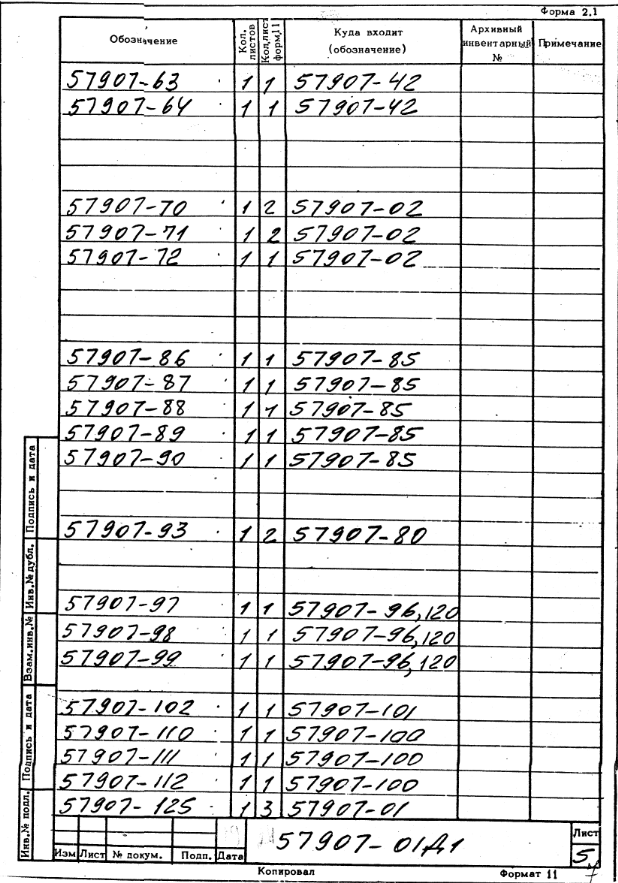 Форма 2.1
Обозначение Кол. листов Кол.лист форм.11 Куда входит (обозначение) Архивный инвентарный № Примечание
57907-63 1 1 57907-42
57907-64 1 1 57907-42
57907-70 1 2 57907-02
57907-71 1 2 57907-02
57907-72 1 1 57907-02
57907-86 1 1 57907-85
57907-87 1 1 57907-85
57907-88 1 1 57907-85
57907-89 1 1 57907-85
57907-90 1 1 57907-85
57907-93 1 2 57907-80
57907-97 1 1 57907-96,120
57907-98 1 1 57907-96,120
57907-99 1 1 57907-96,120
57907-102 1 1 57907-101
57907-110 1 1 57907-100
57907-111 1 1 57907-100
57907-112 1 1 57907-100
57907-125 1 3 57907-01
Инв.№ подл. Подпись и дата Взам.инв.№ Инв.№ дубл. Подпись и дата
57907-01Д1
Лист
5
Изм Лист № докум. Подп. Дата
Копировал Формат 11